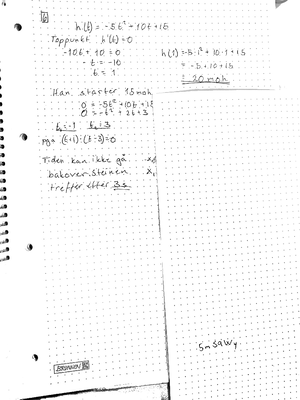 6
h(t) = -5t² + 10t + 15
Toppunkt h'(t) = 0
-10t + 10 = 0
-t = -10
t = 1
h(1) = -5·1² + 10·1 + 15
= -5 + 10 + 15
= 20 moh
Han starter 15 moh
0 = -5t² + 10t + 15
0 = -t² + 2t + 3
t₁ = -1 t₂ = 3
(t+1)·(t-3) = 0
Tiden kan ikke gå
bakover. Steinen
treffer etter 3 s